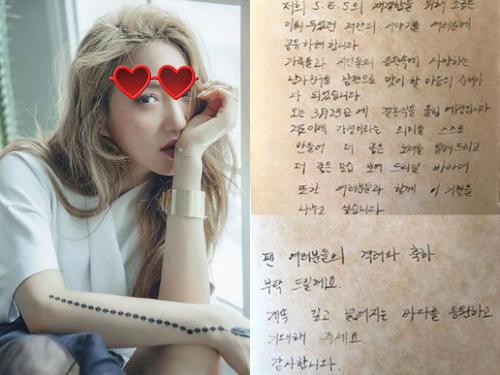 저희 S.E.S의 재결합을 위해 조금은
미뤄 두었던 저만의 이야기를 여러분께
공유하려 합니다.
가족들과 지인들의 응원속에 사랑하는
남자친구를 남편으로 맞이 할 마음의 준비가
다 되었습니다.
오는 3月23일에 결혼식을 올릴 예정입니다.
가정이라는 의미를 스스로
만들어 더 좋은 노래를 들려드리고
더 좋은 모습 보여 드리길 바라며
또한 여러분들과 함께 이 기쁨을
나누고 싶습니다.
팬 여러분들의 격려와 축하
부탁 드릴게요.
계속 깊고 넓어지는 바다를 응원하고
기대해 주세요
감사합니다.